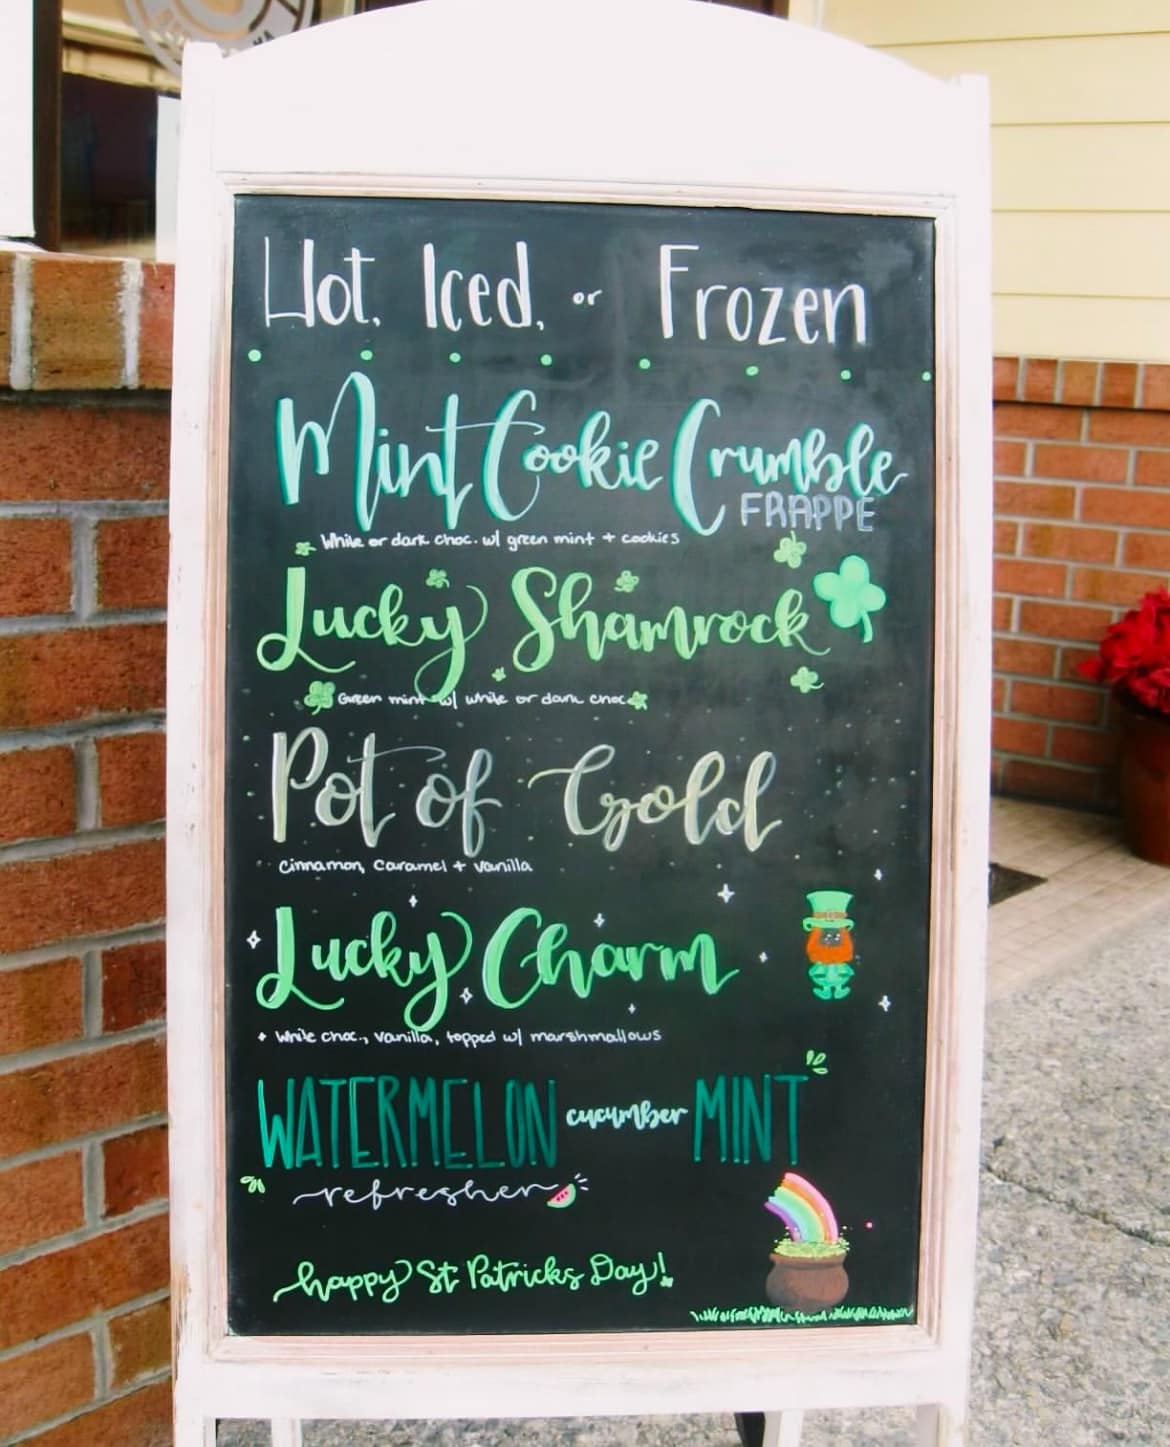 Hot, Iced, or Frozen
Mint Cookie Crumble
FRAPPE
White or dark choc. w/ green mint + cookies
Lucky Shamrock
Green mint w/ white or dark choc
Pot of Gold
Cinnamon, Caramel + Vanilla
Lucky Charm
+ White choc., vanilla, topped w/ marshmallows
WATERMELON cucumber MINT
refresher
happy St Patricks Day!